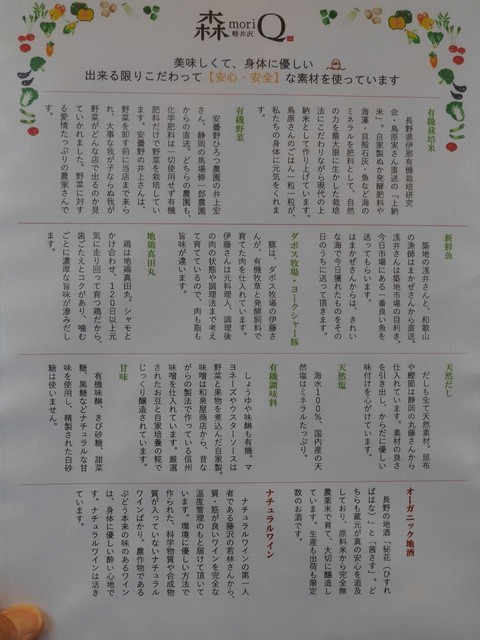 森 mori Q
軽井沢
美味しくて、身体に優しい
出来る限りこだわって【安心・安全】な素材を使っています
有機栽培米
長野県伊那有機栽培研究
会・鳥原実さん直送の「上納
米」。自家製ぬか発酵肥料や
海藻・貝殻石灰・魚など海の
ミネラルを肥料として、自然
の力を最大限に生かした栽培
法にこだわりながら現代の上
納米として作り上げています。
鳥原さんのごはん一粒一粒が、
私たちの身体に元気をくれま
す。
有機野菜
安曇野ひろつ農園の井上宏
さん、静岡の馬場修一郎農園
からの直送。どちらの農園も、
化学肥料は一切使用せず有機
肥料だけで野菜を栽培してい
ます。安曇野の井上さんは、
野菜を卸す前に当店まで来ら
れ、大事な我が子ならぬ我が
野菜がどんな店で出るのか見
ていかれました。野菜に対す
る愛情たっぷりの農家さんで
す。
新鮮魚
築地の浅井さんと、和歌山
の漁師はまかぜさんから直送。
浅井さんは築地市場の目利き。
今日市場にある一番良い魚を
送ってもらいます。
はまかぜさんからは、きれい
な海で今日獲れたものをその
日のうちに送って頂きます。
ダボス牧場・ヨークシャー豚
豚は、ダボス牧場の伊藤さ
んが、有機牧草と発酵飼料で
育てた肉を仕入れています。
伊藤さんは元料理人、調理後
の肉の状態や調理法まで考え
て育てているので、肉も脂も
旨味が違います。
地鶏真田丸
鶏は地鶏真田丸。シャモと
かけ合わせ、120日以上元
気に走り回って育つ鶏だから、
歯ごたえとコクがあり、噛む
ごとに濃厚な旨味が滲みだし
ます。
天然だし
だしも全て天然素材。昆布
や鰹節は静岡の丸藤さんから
仕入れています。素材の良さ
を引き出し、からだに優しい
味付けを心がけています。
天然塩
海水100%、国内産の天
然塩はミネラルたっぷり。
有機調味料
しょうゆや味醂も有機。マ
ヨネーズやウスターソースは
野菜と果物を煮込んだ自家製。
味噌は和泉屋商店から、昔な
がらの製法で作っている信州
味噌を仕入れています。厳選
されたお豆と自家培養の糀で
じっくり醸造されています。
甘味
有機味醂、きび砂糖、甜菜
糖、黒糖などナチュラルな甘
味を使用し、精製された白砂
糖は使いません。
オーガニック地酒
長野の地酒「秘花（ひすれ
ばはな）」と「茜さす」。ど
ちらも蔵元が真の安心を追及
しており、原料米から完全無
農薬米で育て、大切に醸造し
ています。生産も出荷も限定
数のお酒です。
ナチュラルワイン
ナチュラルワインの第一人
者である藤沢の若林さんから、
質・筋が良いワインを完全な
温度管理のもと届けて頂いて
います。環境に優しい方法で
作られた、科学物質や合成物
質が入っていないナチュラル
ワインばかり。農作物である
ぶどう本来の味のあるワイン
は、身体に優しい酔い心地で
す。ナチュラルワインは活き
ています。